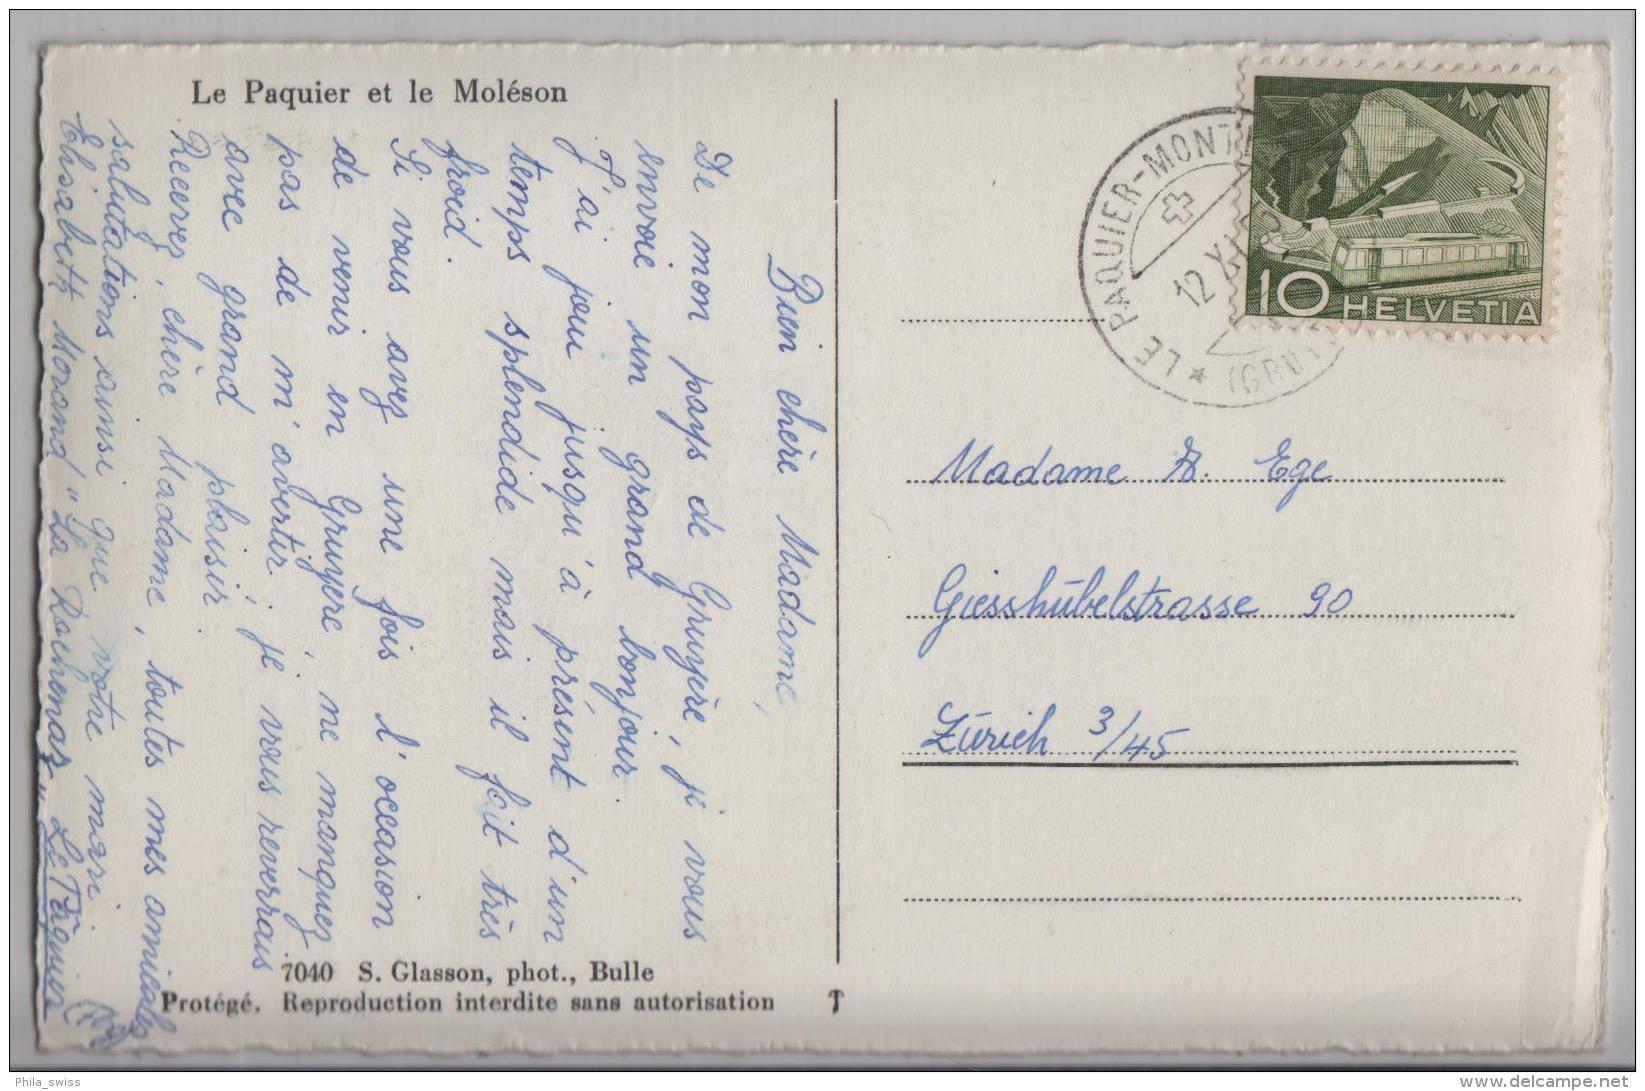 Le Paquier et le Moléson
Bien chère Madame,
De mon pays de Gruyère, je vous
envoie un grand bonjour.
J'ai joui jusqu'à présent d'un
temps splendide mais il fait très
froid.
Si vous avez une fois l'occasion
de venir en Gruyère, ne manquez
pas de m'avertir, je vous reverrais
avec grand plaisir.
Recevez, chère Madame, toutes mes amicales
salutations ainsi que votre mari
Elisabeth Morand "La Rochenaz" Le Pâquier
7040 S. Glasson, phot., Bulle
Protégé. Reproduction interdite sans autorisation
LE PAQUIER-MONT
12 X
(GRUY
10 HELVETIA
Madame A. Ege
Giesshübelstrasse 90
Zürich 3/45
Phila_swiss
www.delcampe.net